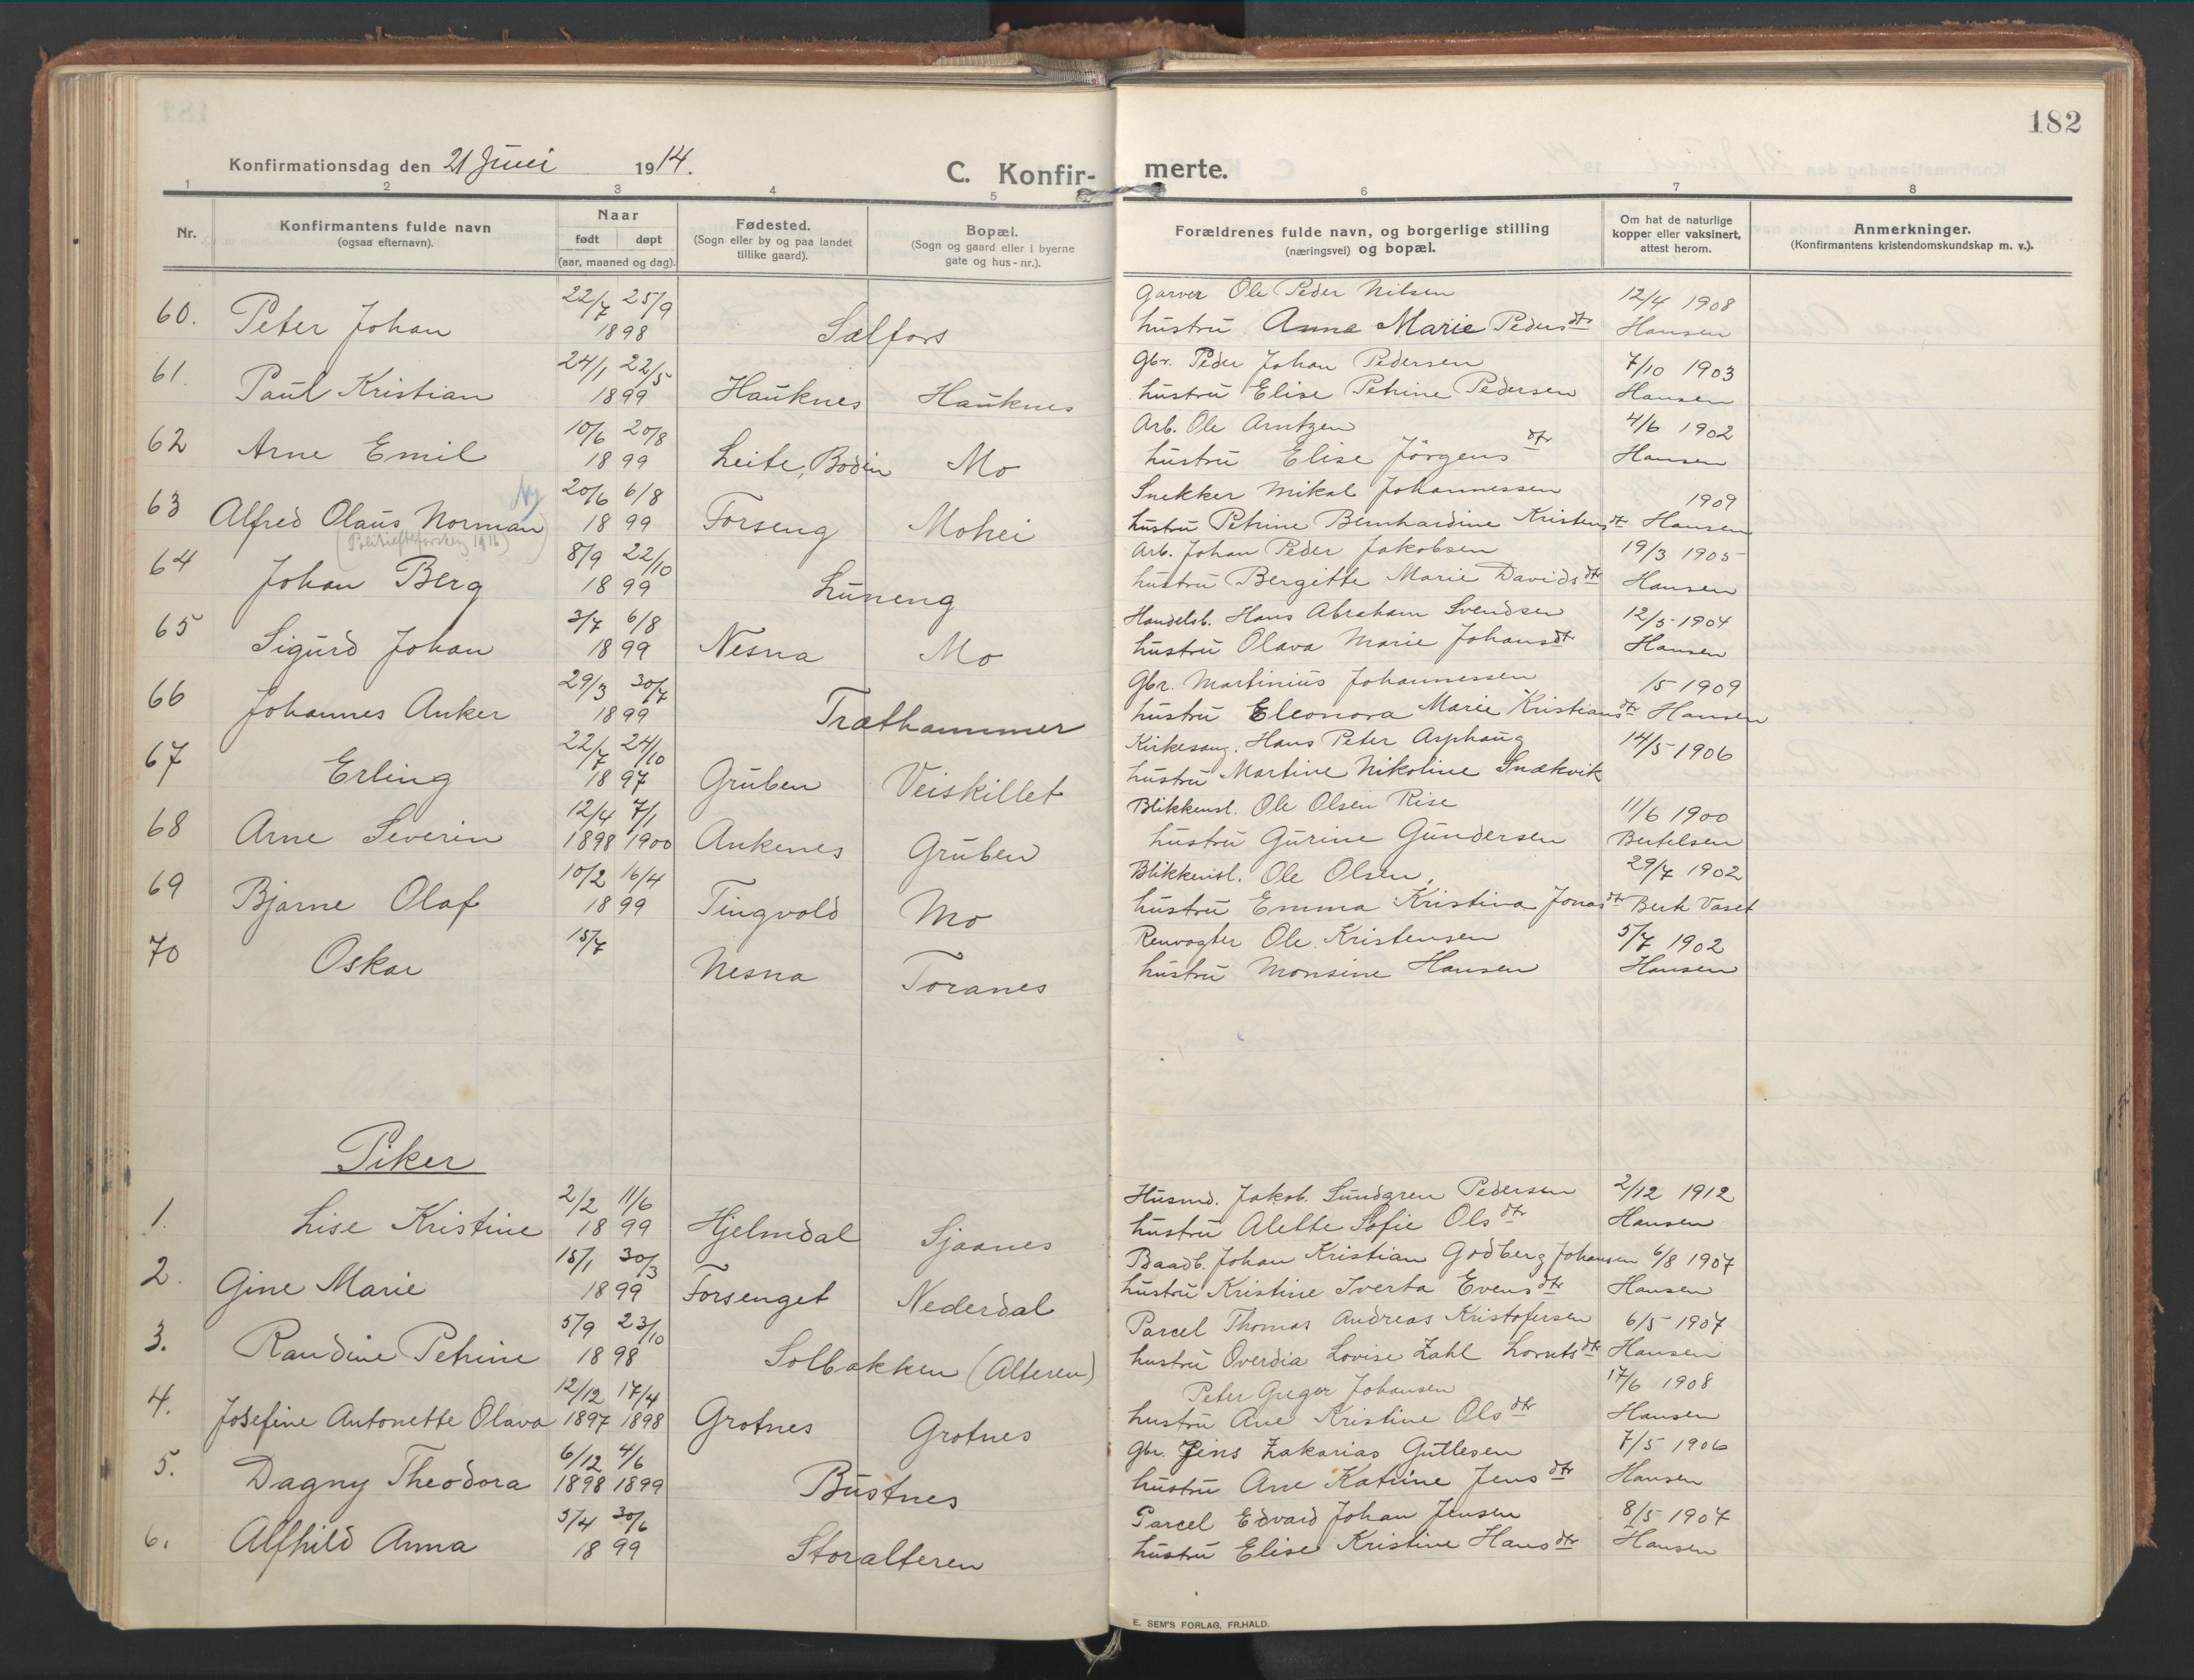 182
Konfirmationsdag den 21 Juni 1914.
C. Konfir- merte.
1 2 3 4 5 6 7 8
Nr.
Konfirmantens fulde navn
(ogsaa efternavn).
Naar
født døpt
(aar, maaned og dag).
Fødested.
(Sogn eller by og paa landet
tillike gaard).
Bopæl.
(Sogn og gaard eller i byerne
gate og hus-nr.).
Forældrenes fulde navn, og borgerlige stilling
(næringsvei) og bopæl.
Om hat de naturlige
kopper eller vaksinert,
attest herom.
Anmerkninger.
(Konfirmantens kristendomskundskap m. v.).
22/7 25/9 Garver Ole Peder Nilsen 12/4 1908
60. Peter Johan 1898 Selfors hustru Anna Marie Pedersdtr Hansen
24/1 22/5 Gbr. Peder Johan Pedersen 7/10 1903
61. Paul Kristian 1899 Hauknes Hauknes hustru Elise Petrine Pedersen Hansen
10/6 20/8 Arb. Ole Arntzen 4/6 1902
62 Arne Emil 1899 Leite, Bodin Mo hustru Elise Jörgensdtr Hansen
Ny 20/6 6/8 Snekker Mikal Johannessen 1909
63 Alfred Olaus Norman 1899 Forseng Mohei hustru Petrine Bernhardine Kristensdtr Hansen
(Politiefterforskng 1916)
8/9 22/10 Arb. Johan Peder Jakobsen 19/3 1905
64 Johan Berg 1899 Luneng hustru Bergitte Marie Davidsdtr Hansen
3/7 6/8 Handelsb. Hans Abraham Svendsen 12/5 1904
65 Sigurd Johan 1899 Nesna Mo hustru Olava Marie Johansdtr Hansen
29/3 30/7 Gbr. Martinius Johannessen /5 1909
66 Johannes Anker 1899 Træthammer hustru Eleonora Marie Kristiansdtr Hansen
22/7 24/10 Kirkesang. Hans Peter Asphaug 14/5 1906
67 Erling 1897 Gruben Veiskillet hustru Martine Nikoline Snekvik
12/4 7/1 Blikkensl. Ole Olsen Rise 11/6 1900
68 Arne Severin 1898 1900 Ankenes Gruben hustru Gurine Gundersen Bertelsen
10/2 16/4 Blikkensl. Ole Olsen, 29/7 1902
69 Bjarne Olaf 1899 Tingvold Mo hustru Emma Kristina Jonasdtr Berk Vaset
15/7 Renvogter Ole Kristensen 5/7 1902
70 Oskar Nesna Toranes hustru Monsine Hansen Hansen
Piker
2/2 11/6 Husmd. Jakob Lundgren Pedersen 2/12 1912
1. Lise Kristine 1899 Hjelmdal Sjaanes hustru Alette Sofie Olsdtr Hansen
15/1 30/3 Baadb. Johan Kristian Godberg Johansen 6/8 1907
2. Gine Marie 1899 Forsenget Nederdal hustru Kristine Iverta Evensdtr Hansen
5/9 23/10 Parcel Thomas Andreas Kristofersen 6/5 1907
3. Randine Petrine 1898 Solbakken (Alteren) hustru Overdia Lovise Zahl Lorntsdtr Hansen
12/12 17/4 Peter Greger Johansen 17/6 1908
4. Josefine Antonette Olava 1897 1898 Grotnes Grotnes hustru Ane Kristine Olsdtr Hansen
6/12 4/6 Gbr. Jens Zakarias Gutlesen 7/5 1906
5. Dagny Theodora 1898 1899 Bustnes hustru Ane Katrine Jensdtr Hansen
5/4 30/6 Parcel Edvard Johan Jensen 8/5 1907
6. Alfhild Anna 1899 Storalteren hustru Elise Kristine Hansdtr Hansen
E. SEM'S FORLAG, FR.HALD.